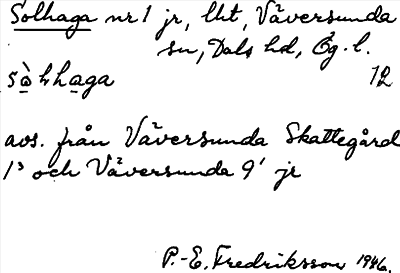 Solhaga nr 1 jr, lht, Väversunda
sn, Dals hd, Ög. l.
sò̲hha̲ga 12
avs. från Väversunda Skattegård
1³ och Väversunda 9¹ jr
P.-E. Fredriksson 1946.